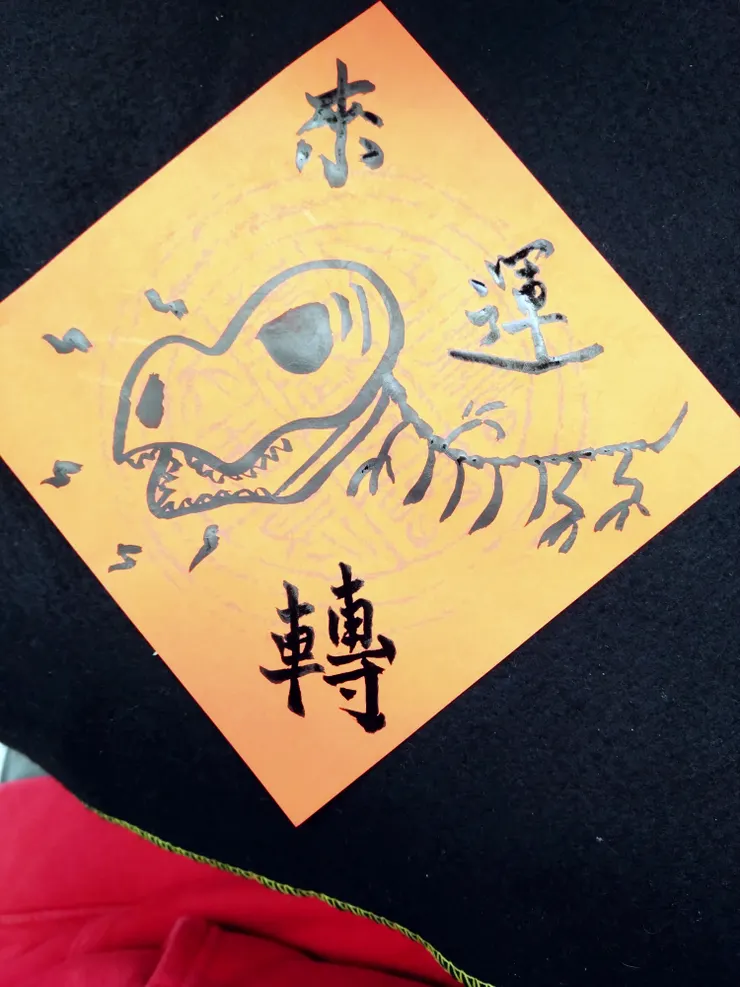 來
運
轉